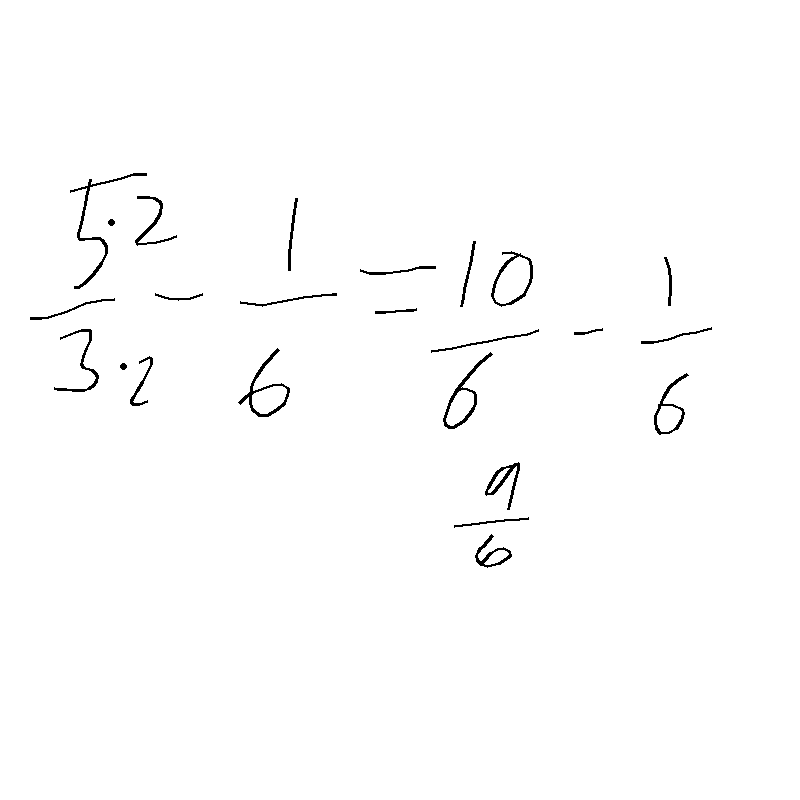 5·2/3·2 - 1/6 = 10/6 - 1/6
9/6